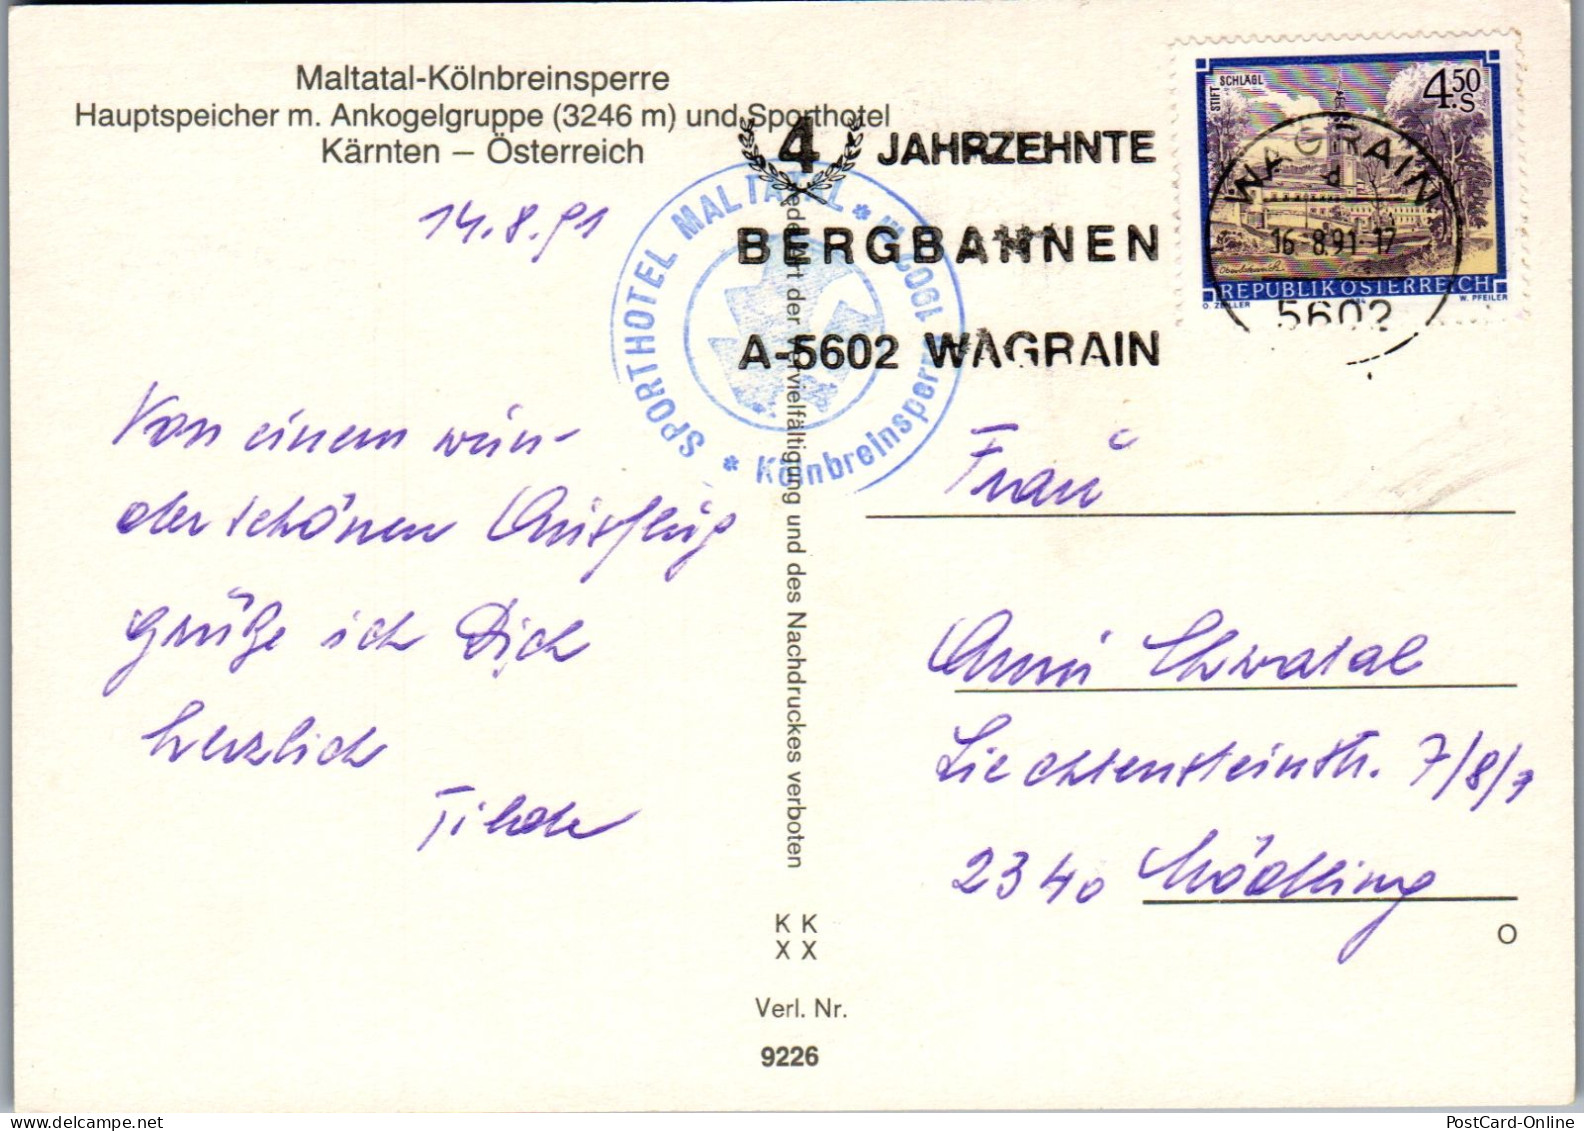 Maltatal-Kölnbreinsperre
Hauptspeicher m. Ankogelgruppe (3246 m) und Sporthotel
Kärnten – Österreich
14.8.91
Von einem wun-
derschönen Ausflug
grüße ich Dich
herzlich
Tilde
SPORTHOTEL MALTATAL * 1902 m * Kölnbreinsperre
4 JAHRZEHNTE
BERGBAHNEN
A-5602 WAGRAIN
STIFT SCHLÄGL
4.50 S
REPUBLIK ÖSTERREICH
O. ZEILLER
W. PFEILER
WAGRAIN
16.-8.91-17
5602
Jede Art der Vervielfältigung und des Nachdruckes verboten
Frau
Anni Chwatal
Liechtensteinstr. 7/8/7
2340 Mödling
O
K K
X X
Verl. Nr.
9226
PostCard-Online